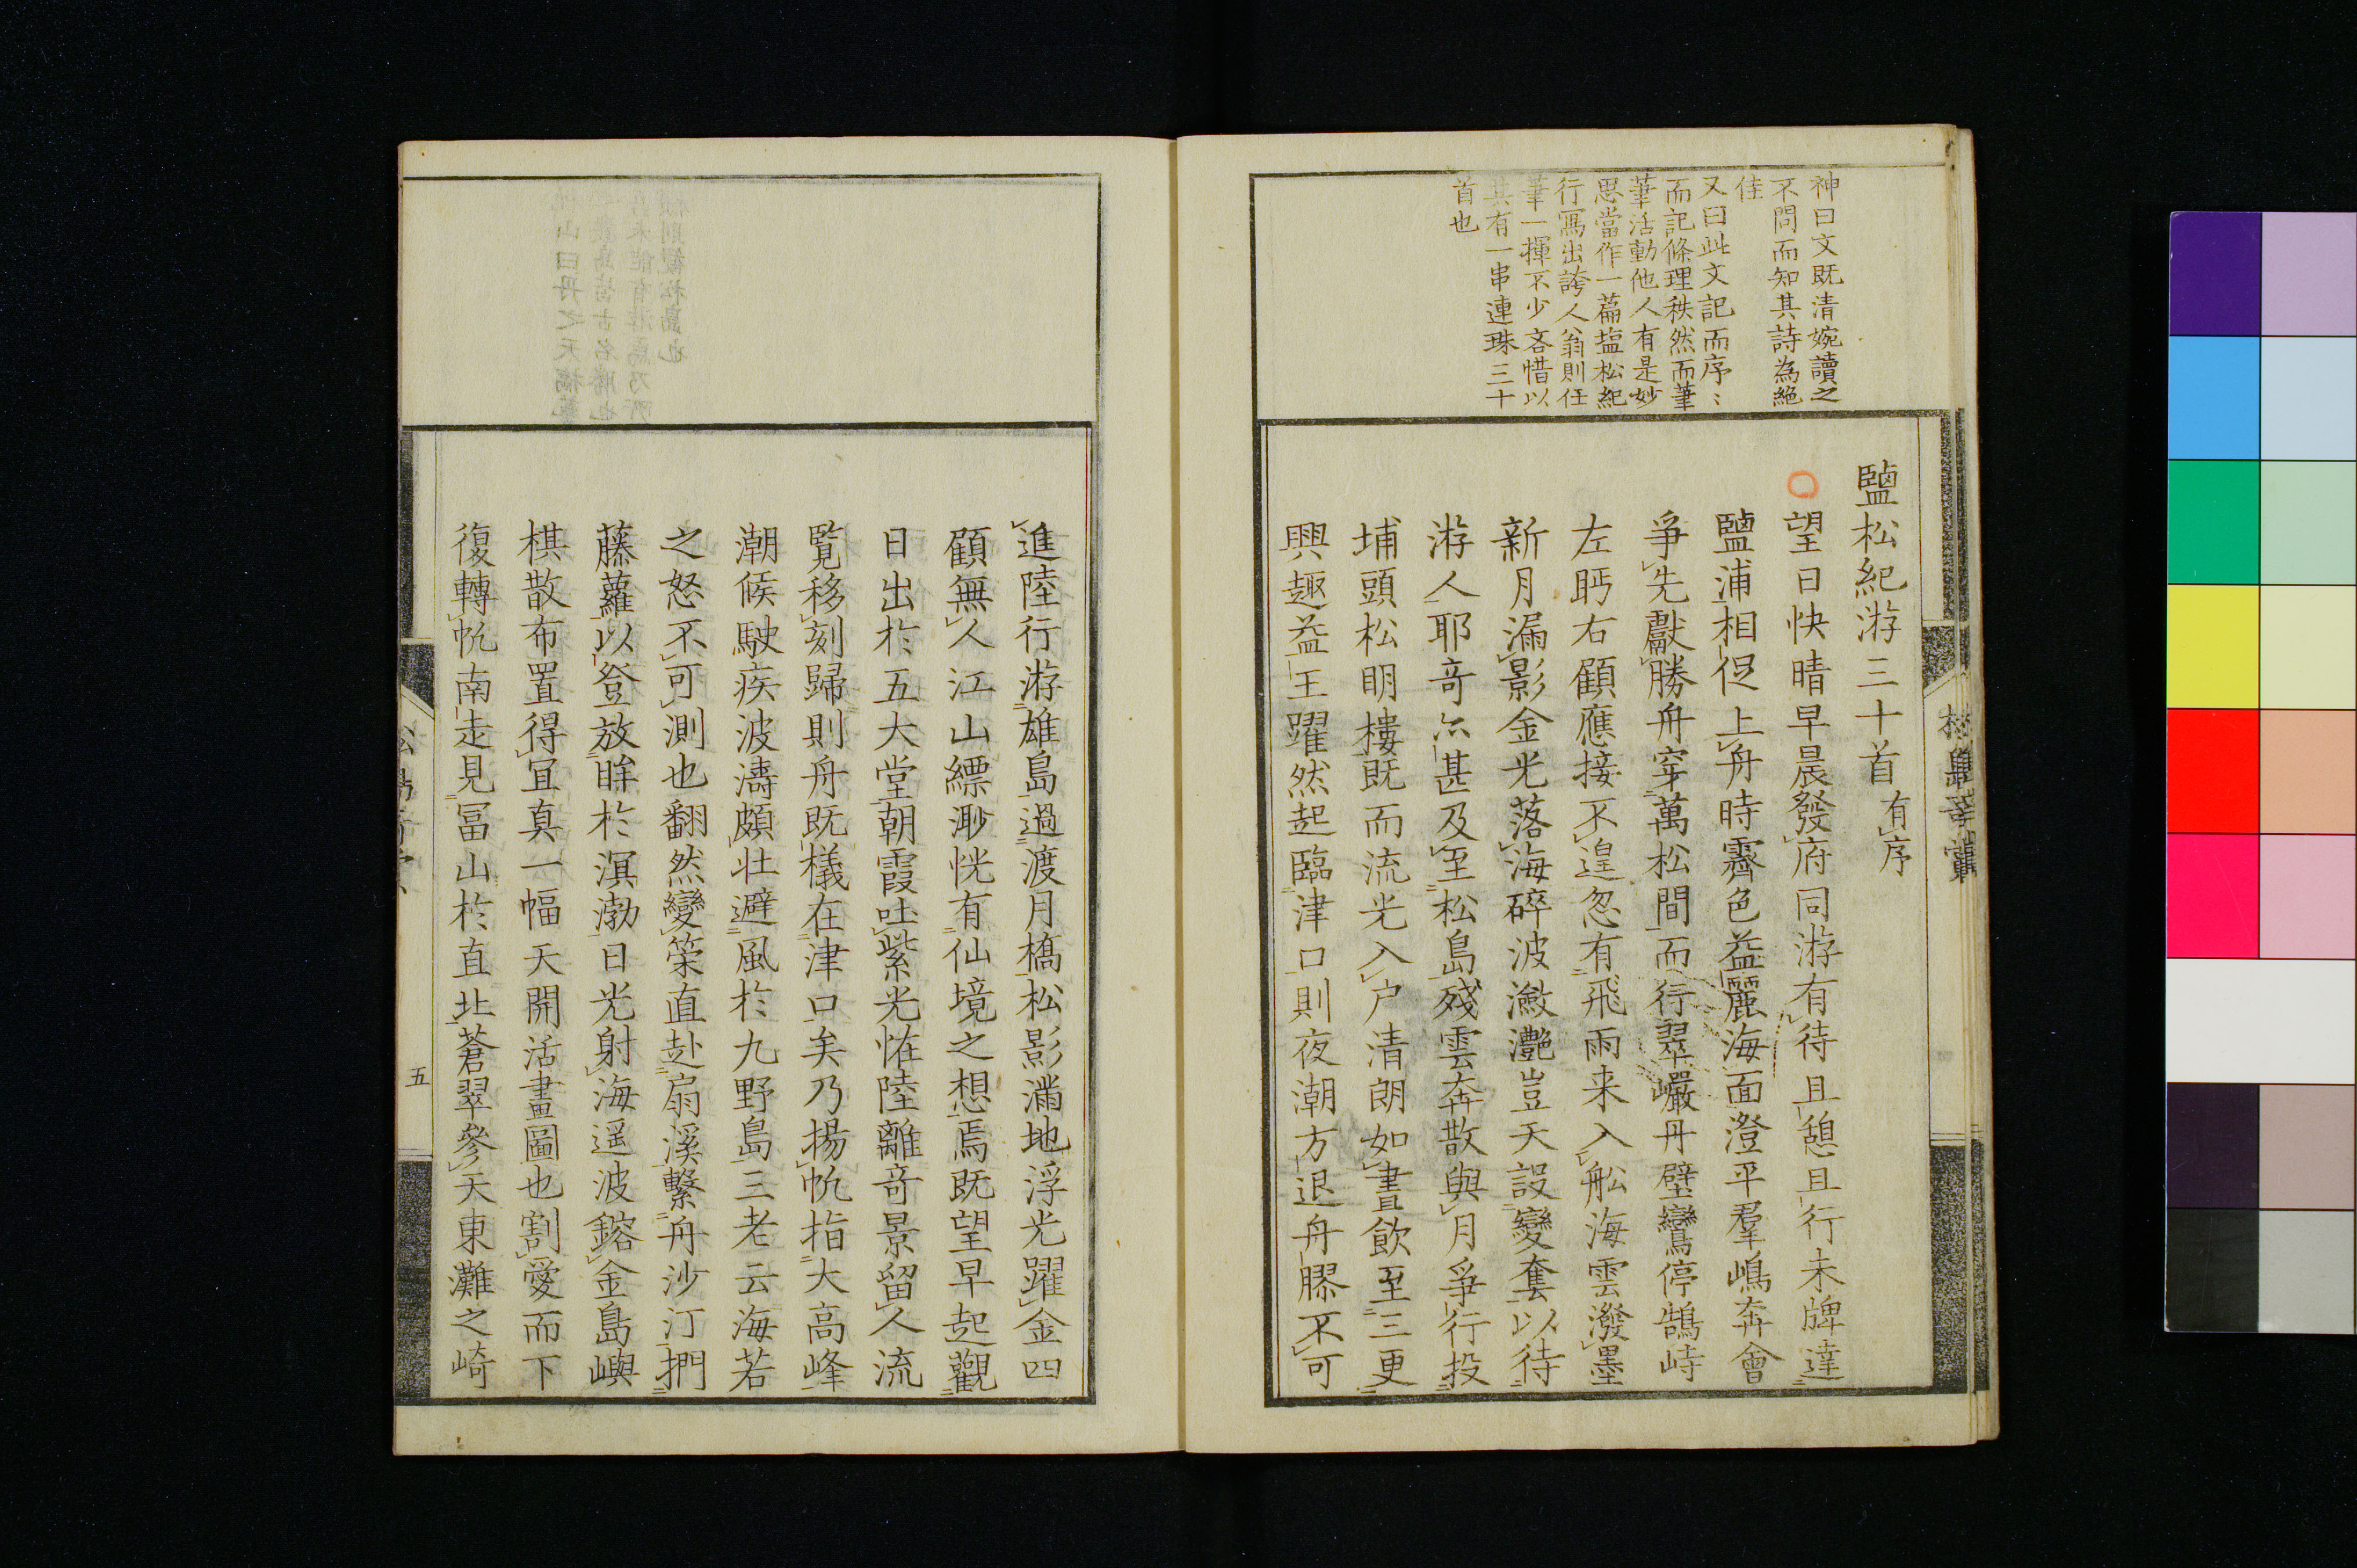 神曰文既清婉讀之
不問而知其詩為絶
佳
又曰此文記而序〻
而記條理秩然而筆
華活動他人有是妙
思當作一篇塩松紀
行寫出誇人翁則任
筆一揮不少吝惜以
其有一串連珠三十
首也
鹽松紀游三十首 有序
望日快晴早晨發府同游有待且憩且行未牌達
鹽浦相促上舟時霽色益麗海面澄平羣嶋奔會
爭先獻勝舟穿萬松間而行翠巗丹壁鸞停鵠峙
左眄右顧應接不遑忽有飛雨来入舩海雲潑墨
新月漏影金光落海碎波瀲灧豈天設變奪以待
游人耶竒亦甚及至松島殘雲奔散與月爭行投
埔頭松明樓既而流光入户清朗如晝飲至三更
興趣益王躍然起臨津口則夜潮方退舟膠不可
進陸行游雄島過渡月橋松影滿地浮光躍金四
顧無人江山縹渺恍有仙境之想焉既望早起觀
日出於五大堂朝霞吐紫光恠陸離竒景留人流
覧移刻歸則舟既檥在津口矣乃揚帆指大高峰
潮候駛疾波濤頗壮避風於九野島三老云海若
之怒不可測也翻然變策直赴扇溪繋舟沙汀捫
藤蘿以登放眸於溟渤日光射海遥波鎔金島嶼
棋散布置得冝真一幅天開活畫圖也割愛而下
復轉帆南走見冨山於直北蒼翠參天東灘之崎
五